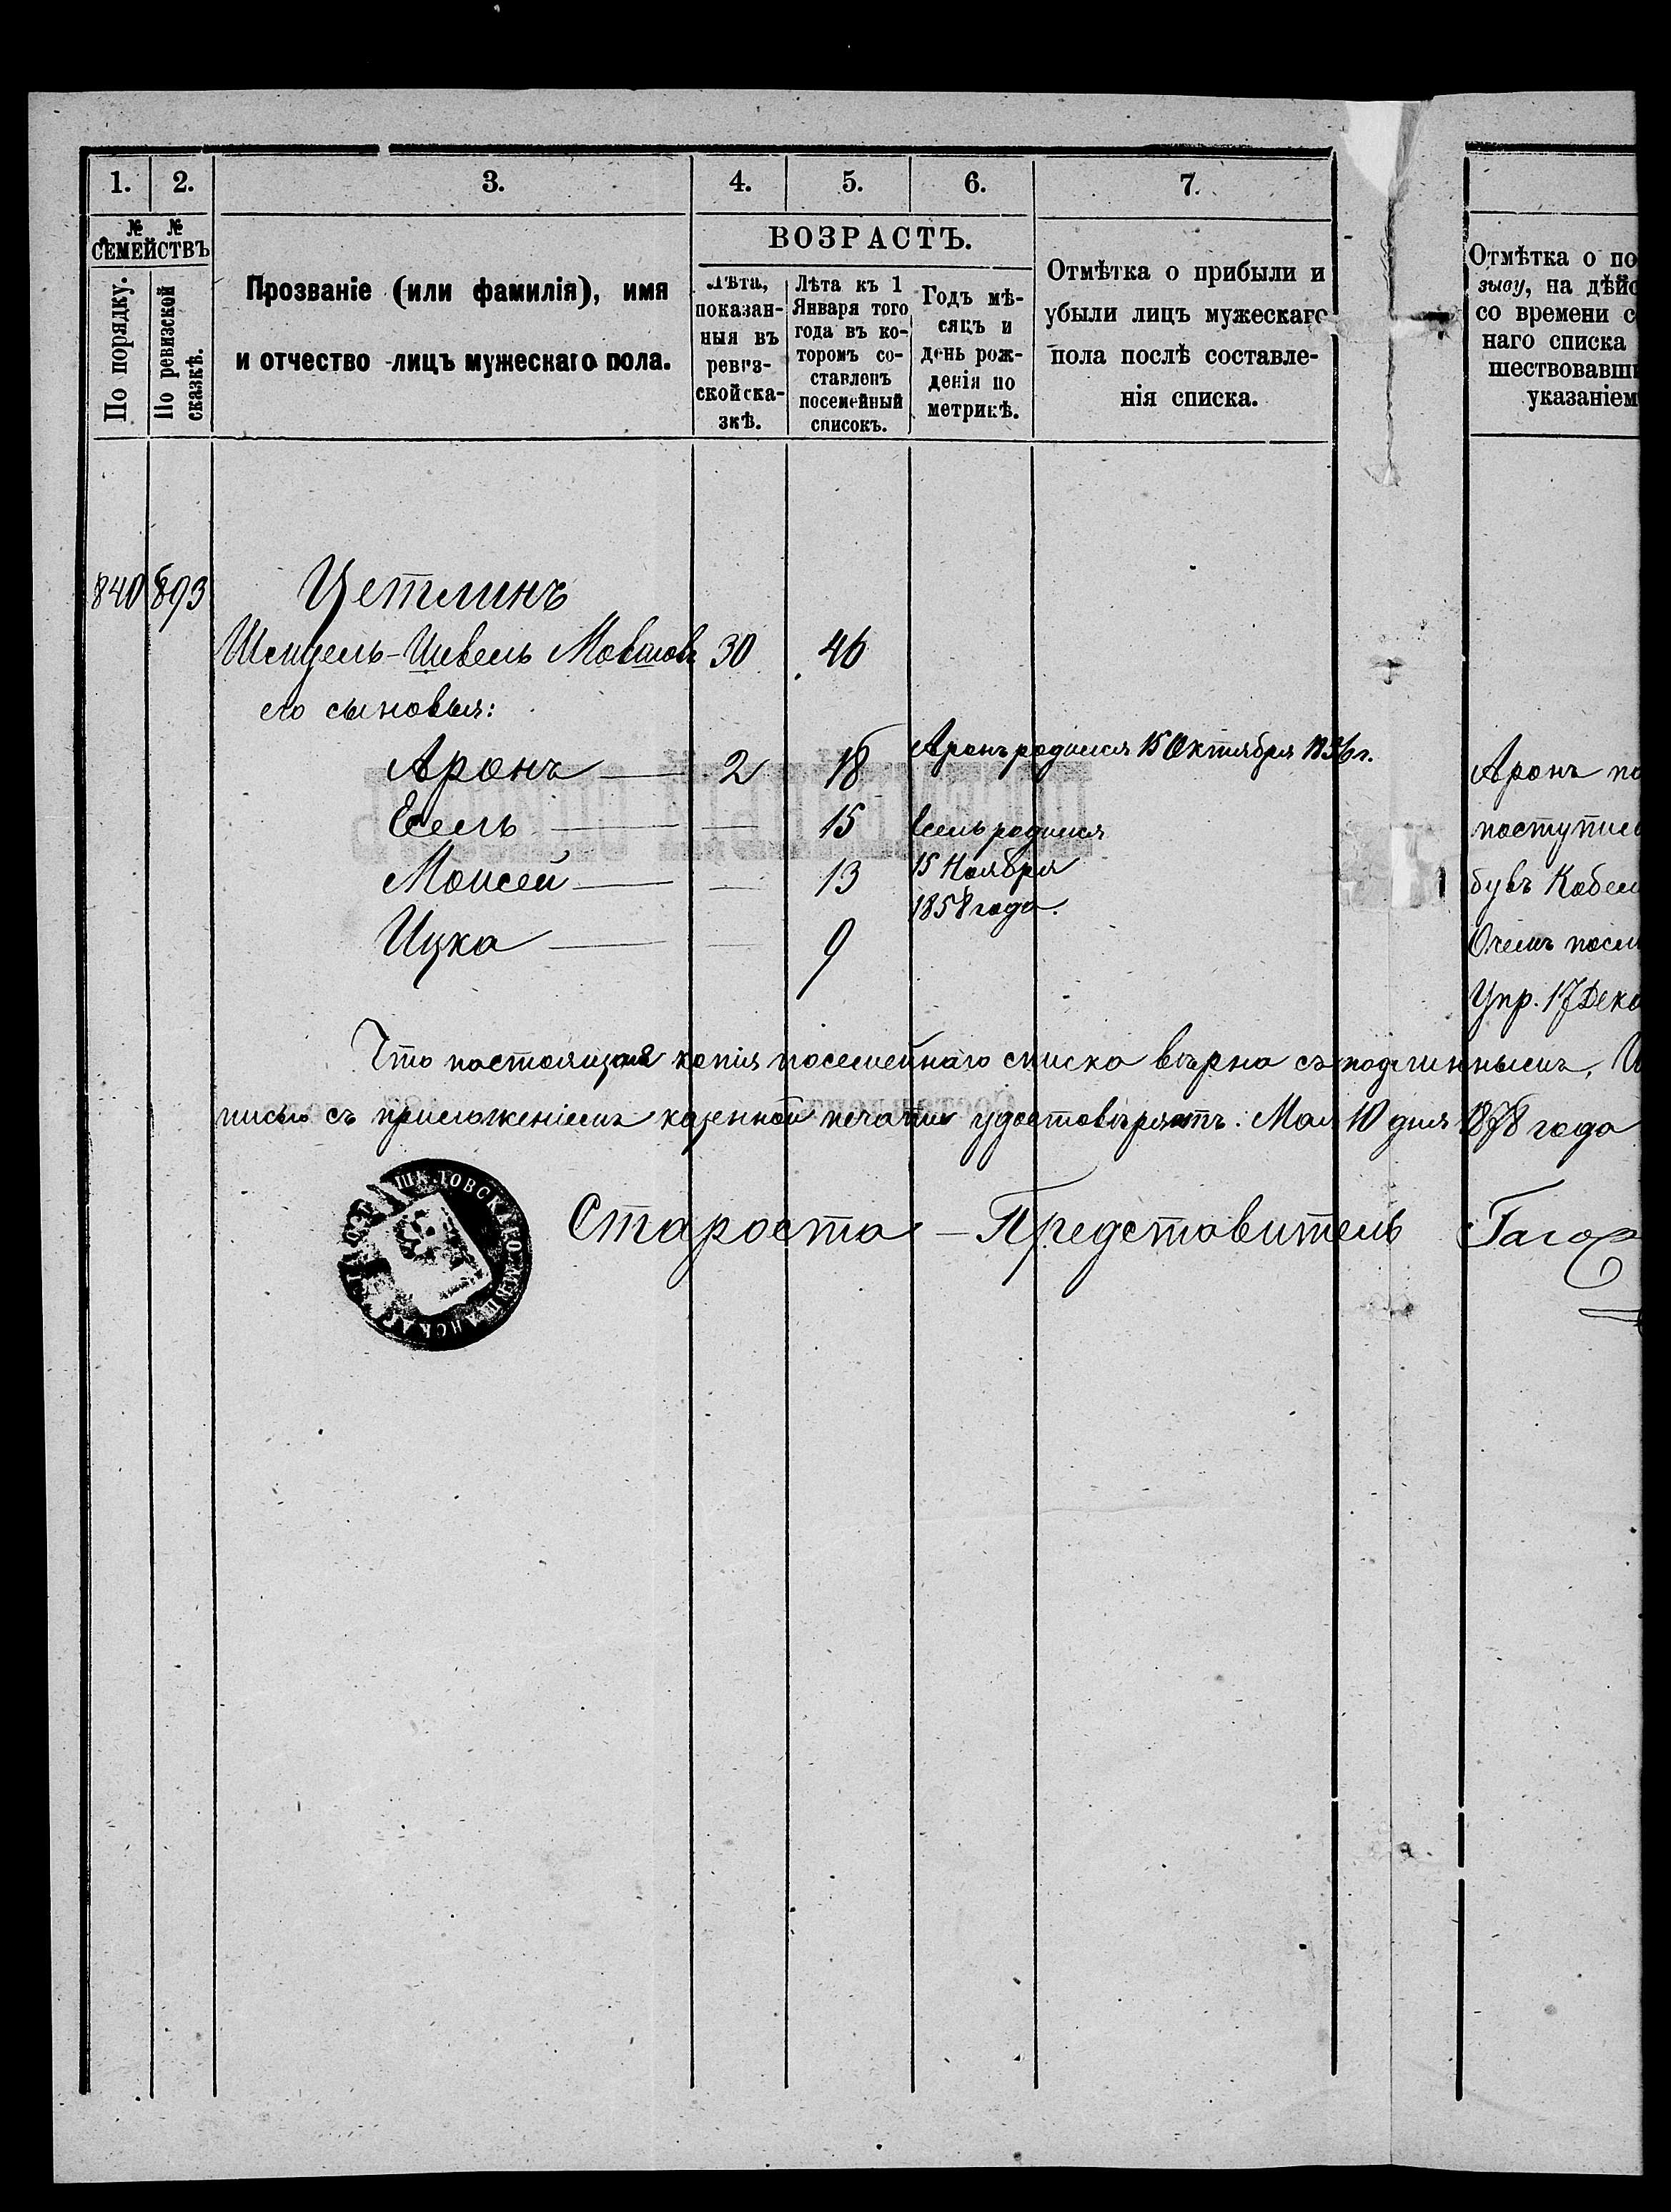 1. 2. 3. 4. 5. 6. 7.
№ №
СЕМЕЙСТВЪ
По порядку.
По ревизской
сказкѣ.
Прозваніе (или фамилія), имя
и отчество лицъ мужескаго пола.
ВОЗРАСТЪ.
Лѣта,
показан-
ныя въ
ревиз-
ской ска-
зкѣ.
Лѣта къ 1
Января того
года въ ко-
торомъ со-
ставленъ
посемейный
списокъ.
Годъ мѣ-
сяцъ и
день рож-
денія по
метрикѣ.
Отмѣтка о прибыли и
убыли лицъ мужескаго
пола послѣ составле-
нія списка.
Отмѣтка о по
зыву, на дѣйс
со времени с
наго списка
шествовавши
указаніем
840 893 Цетлинъ
30 46
его сыновья:
Аронъ — 2 18 Аронъ родился 15 Октября 1856 г.
Есель — — 15 Есель родился
Моисей — — 13 15 Ноября
1858 года.
Ицка — — 9
Аронъ по
поступил
букъ
посл
Упр. 17 Дека
Что настоящая копія посемейнаго списка вѣрна съ подлиннымъ,
писью съ приложеніемъ казенной печати удостовѣряетъ: Мая 10 дня 1878 года
Староста – Представитель
ШКЛОВСКАГО МѢЩАНСКАГО